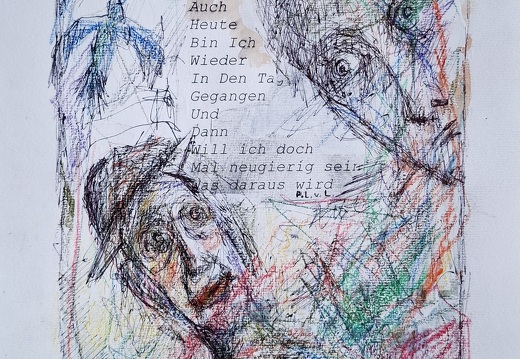 Auch
Heute
Bin Ich
Wieder
In Den Tag
Gegangen
Und
Dann
Will ich doch
Mal neugierig sein
Was daraus wird
P.L.v.L.